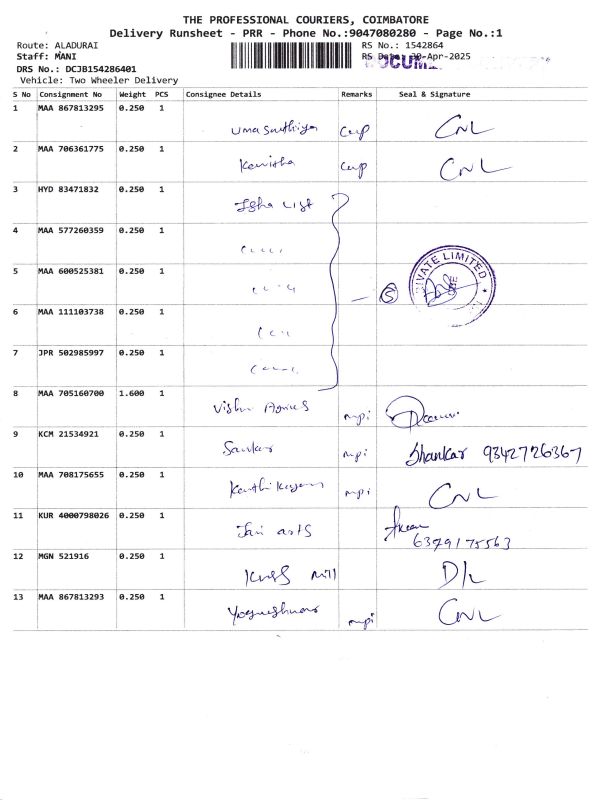 THE PROFESSIONAL COURIERS, COIMBATORE
Delivery Runsheet - PRR - Phone No.:9047080280 - Page No.:1
Route: ALADURAI
Staff: MANI
DRS No.: DCJB154286401
Vehicle: Two Wheeler Delivery
RS No.: 1542864
RS Date: 30-Apr-2025
DOCUM
S No Consignment No Weight PCS Consignee Details Remarks Seal & Signature
1 MAA 867813295 0.250 1 CNL
2 MAA 706361775 0.250 1 Kavitha CNL
3 HYD 83471832 0.250 1 Isha
4 MAA 577260359 0.250 1
5 MAA 600525381 0.250 1 5
IVATE LIMITED
6 MAA 111103738 0.250 1
7 JPR 502985997 0.250 1
8 MAA 705160700 1.600 1 mpi
9 KCM 21534921 0.250 1 Sankar mpi Shankar 9342726367
10 MAA 708175655 0.250 1 mpi CNL
11 KUR 4000798026 0.250 1 Jai arts 6379175563
12 MGN 521916 0.250 1 mill D/L
13 MAA 867813293 0.250 1 mpi CNL